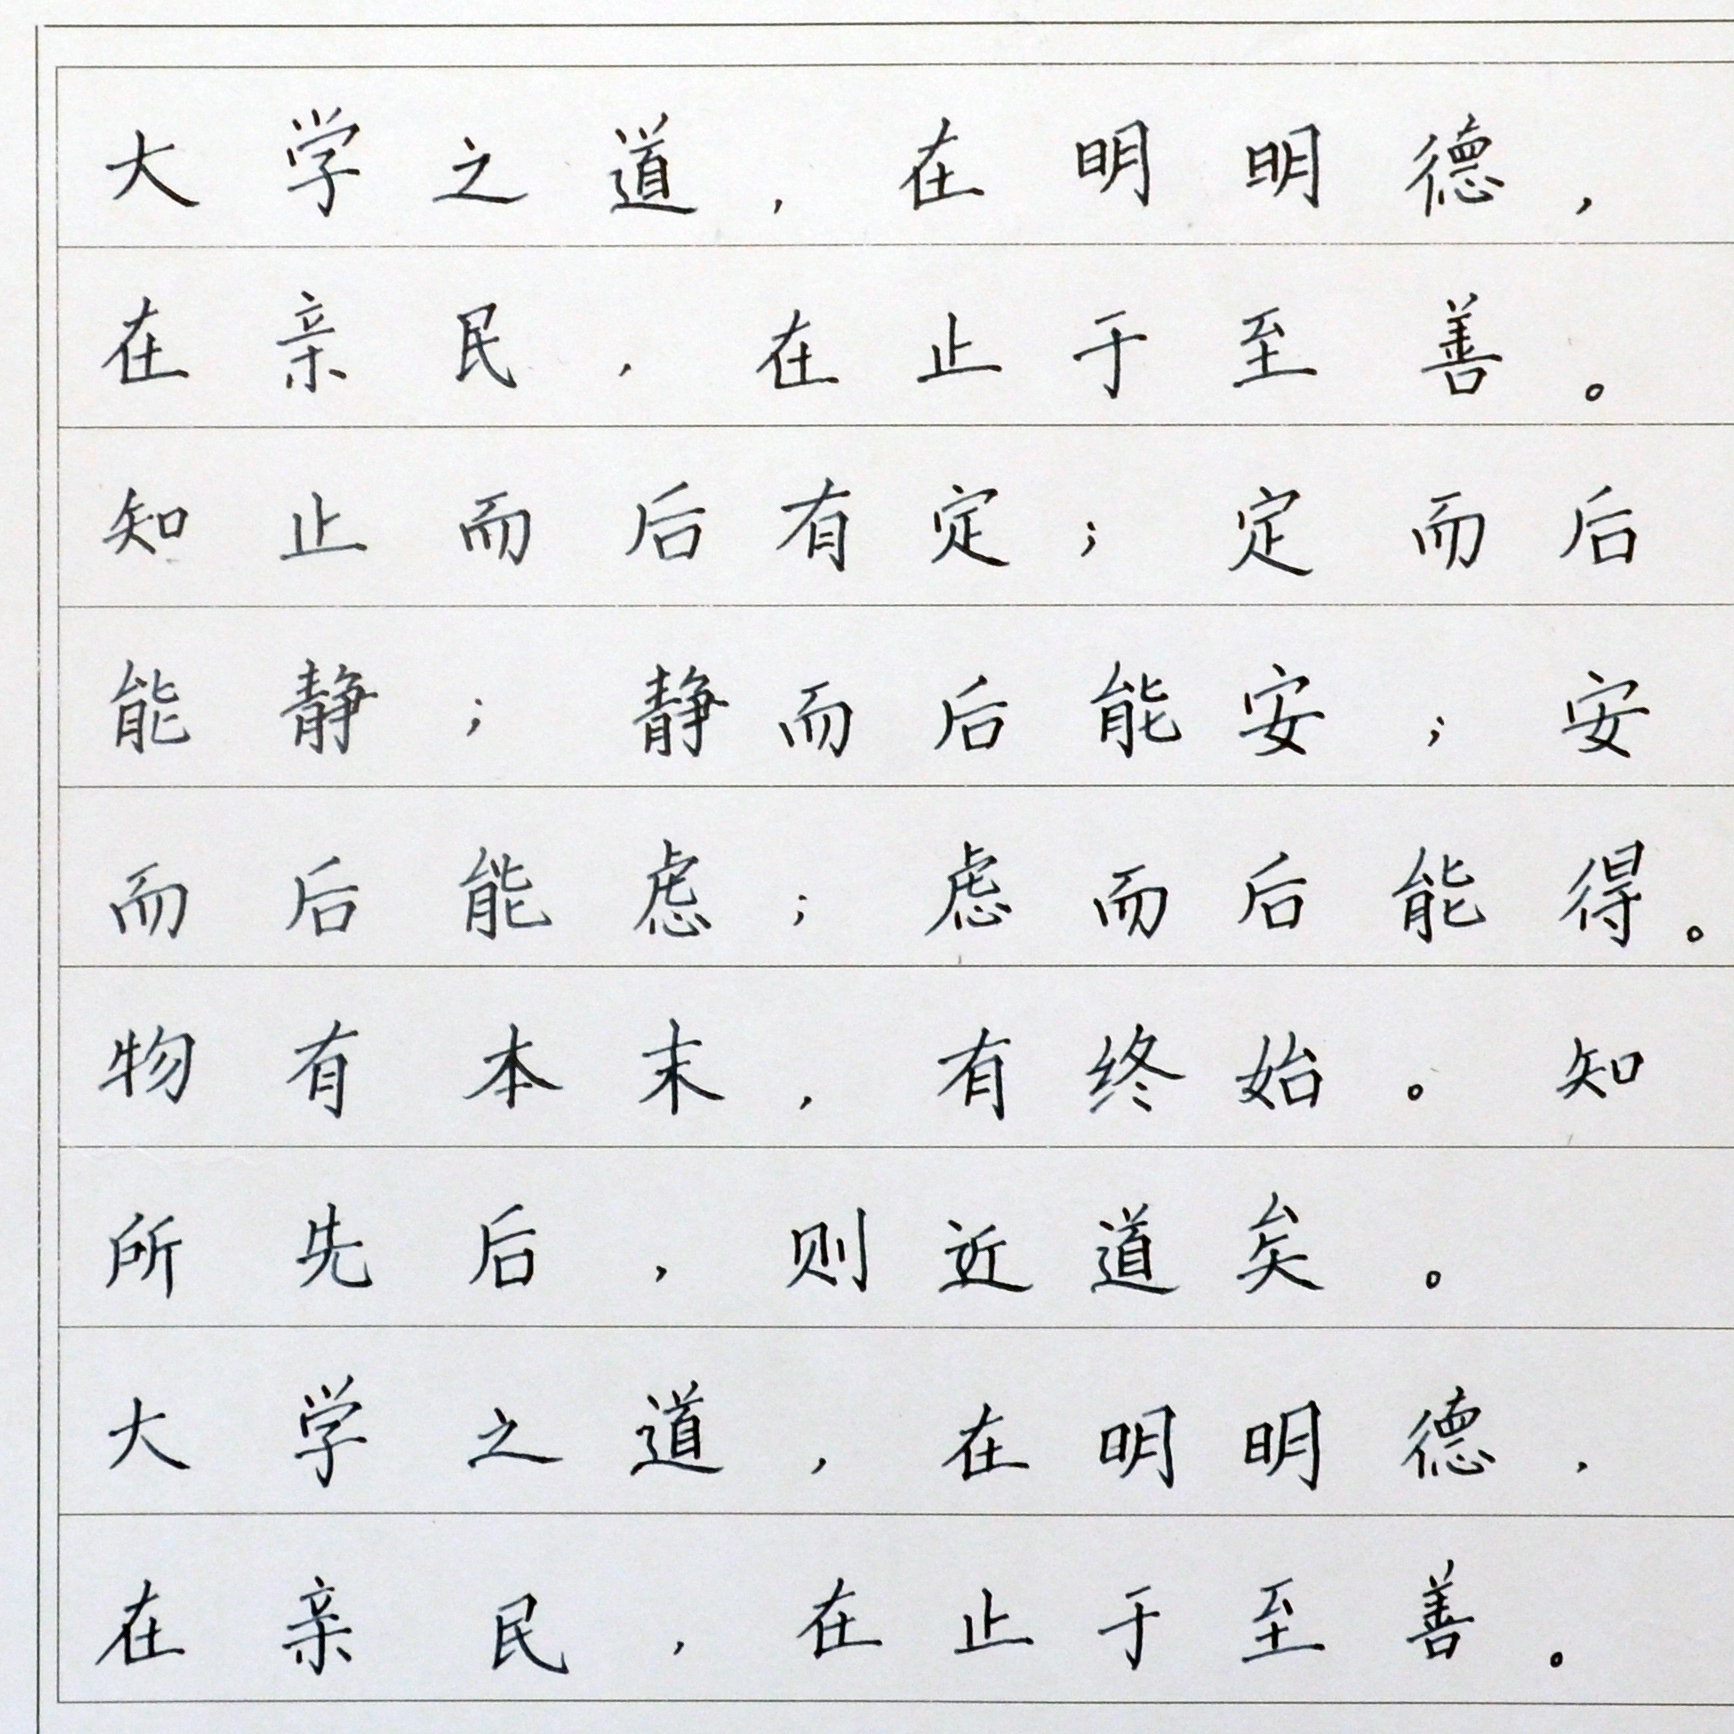 大学之道，在明明德，
在亲民，在止于至善。
知止而后有定；定而后
能静；静而后能安；安
而后能虑；虑而后能得。
物有本末，有终始。知
所先后，则近道矣。
大学之道，在明明德，
在亲民，在止于至善。